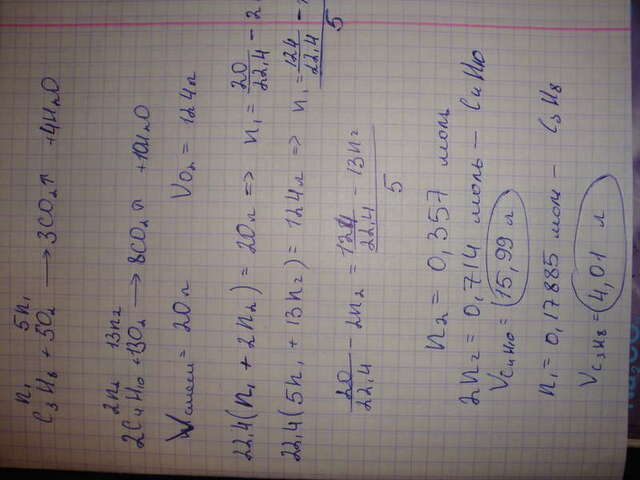 n₁ 5n₁
C₃H₈ + 5O₂ → 3CO₂↑ + 4H₂O
2n₂ 13n₂
2C₄H₁₀ + 13O₂ → 8CO₂↑ + 10H₂O
Vсмеси = 20 л VO₂ = 124 л
22,4(n₁ + 2n₂) = 20 л => n₁ = 20/22,4 - 2
22,4(5n₁ + 13n₂) = 124 л => n₁ = 124/22,4 - / 5
20/22,4 - 2n₂ = (124/22,4 - 13n₂)/5
n₂ = 0,357 моль
2n₂ = 0,714 моль - C₄H₁₀
VC₄H₁₀ = 15,99 л
n₁ = 0,17885 моль - C₃H₈
VC₃H₈ = 4,01 л